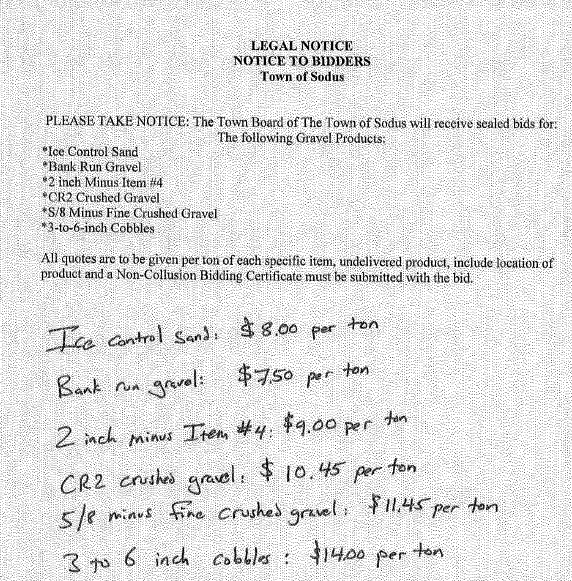 LEGAL NOTICE
NOTICE TO BIDDERS
Town of Sodus
PLEASE TAKE NOTICE: The Town Board of The Town of Sodus will receive sealed bids for:
The following Gravel Products:
*Ice Control Sand
*Bank Run Gravel
*2 inch Minus Item #4
*CR2 Crushed Gravel
*5/8 Minus Fine Crushed Gravel
*3-to-6-inch Cobbles
All quotes are to be given per ton of each specific item, undelivered product, include location of
product and a Non-Collusion Bidding Certificate must be submitted with the bid.
Ice control sand: $8.00 per ton
Bank run gravel: $7.50 per ton
2 inch minus Item #4: $9.00 per ton
CR2 crushed gravel: $10.45 per ton
5/8 minus fine crushed gravel: $11.45 per ton
3 to 6 inch cobbles: $14.00 per ton